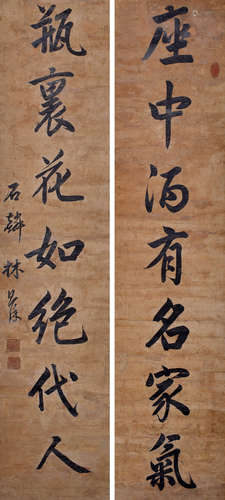 座中酒有名家氣
瓶裏花如絕代人
石麟林